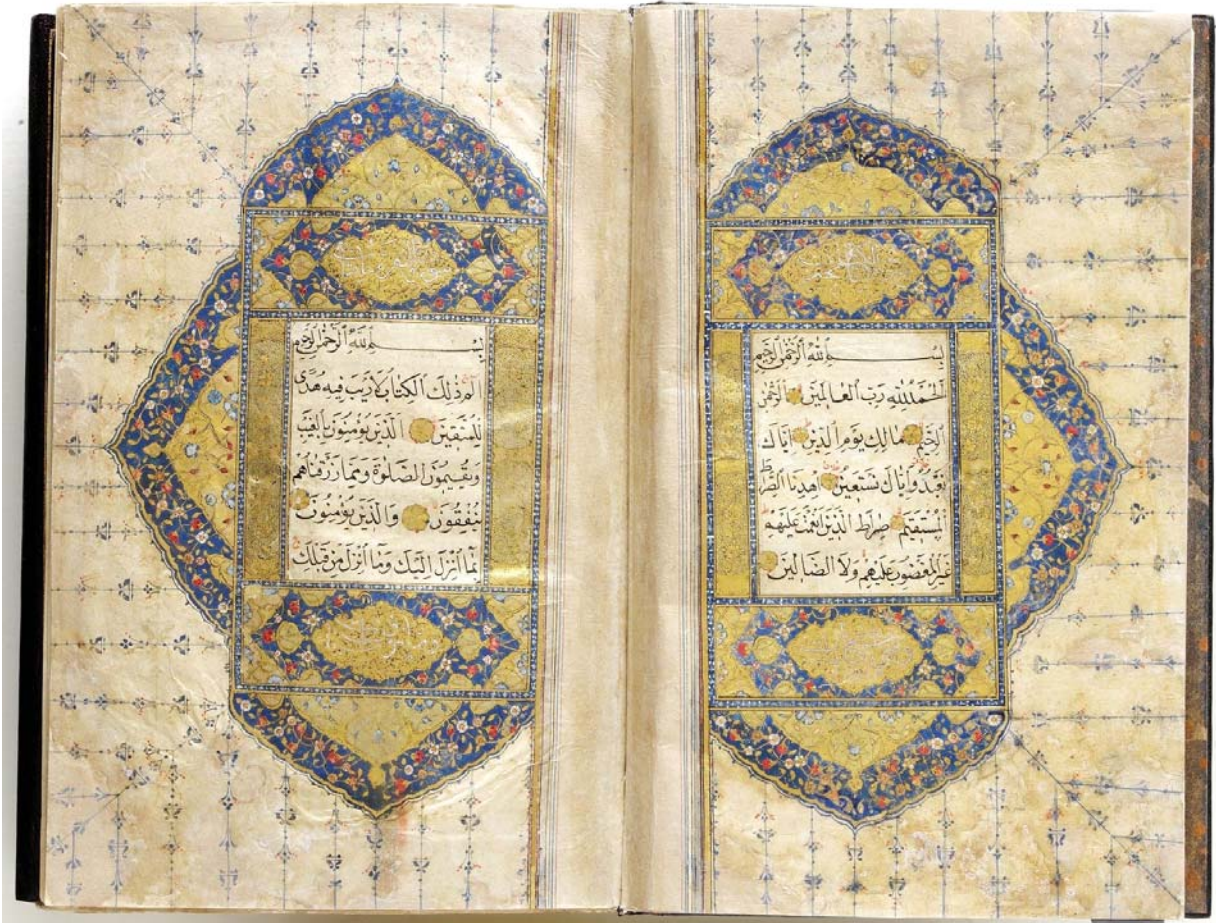 بِسْمِ ٱللَّهِ ٱلرَّحْمَٰنِ ٱلرَّحِيمِ
ٱلْحَمْدُ لِلَّهِ رَبِّ ٱلْعَالَمِينَ ٱلرَّحْمٰنِ
ٱلرَّحِيمِ مَالِكِ يَوْمِ ٱلدِّينِ إِيَّاكَ
نَعْبُدُ وَإِيَّاكَ نَسْتَعِينُ اِهْدِنَا ٱلصِّرَاطَ
ٱلْمُسْتَقِيمَ صِرَاطَ ٱلَّذِينَ أَنْعَمْتَ عَلَيْهِمْ
غَيْرِ ٱلْمَغْضُوبِ عَلَيْهِمْ وَلَا ٱلضَّالِّينَ
بِسْمِ ٱللَّهِ ٱلرَّحْمَٰنِ ٱلرَّحِيمِ
الٓمٓ ذَٰلِكَ ٱلْكِتَابُ لَا رَيْبَ فِيهِ هُدًى
لِلْمُتَّقِينَ ٱلَّذِينَ يُؤْمِنُونَ بِٱلْغَيْبِ
وَيُقِيمُونَ ٱلصَّلٰوةَ وَمِمَّا رَزَقْنَاهُمْ
يُنْفِقُونَ وَٱلَّذِينَ يُؤْمِنُونَ
بِمَا أُنْزِلَ إِلَيْكَ وَمَا أُنْزِلَ مِنْ قَبْلِكَ